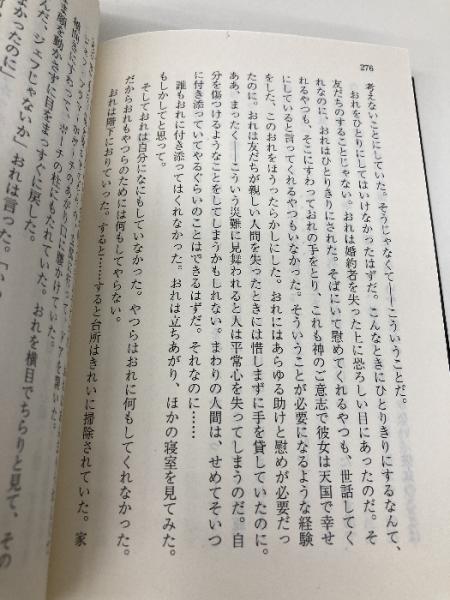 276
考えないことにしていた。そうじゃなくて――こういうことだ。
おれをひとりにしてはいけなかったはずだ。こんなときにひとりきりにするなんて、
友だちのすることじゃない。おれは婚約者を失った上に恐ろしい目にあったのだ。そ
れなのに、おれはひとりきりにされた。そばにいて慰めてくれるやつも、世話してく
れるやつも、そこにすわっておれの手をとり、これも神のご意志で彼女は天国で幸せ
にしていると言ってくれるやつもいなかった。そういうことが必要になるような経験
をした、このおれをほったらかしにした。おれにはあらゆる助けと慰めが必要だっ
たのに。おれは友だちが親しい人間を失ったときには惜しまずに手を貸していたのに。
ああ、まったく――こういう災難に見舞われると人は平常心を失ってしまうのだ。自
分を傷つけるようなことをしてしまうかもしれない。まわりの人間は、せめてそいつ
に付き添っていてやるぐらいのことはできるはずだ。それなのに……
誰もおれに付き添ってはくれなかった。おれは立ちあがり、ほかの寝室を見てみた。
もしかしてと思って。
そしておれは自分になにもしていなかった。やつらはおれに何もしてくれなかった。
だからおれもやつらのためには何もしてやらない。
おれは階下におりていった。すると……すると台所はきれいに掃除されていた。家
のあがり口に腰かけていた。
にすわって、ポーチの柱にもたれていた。おれを横目でちらりと見て、その
まま頭を動かさずに目をまっすぐに戻した。
んだ、ジェフじゃないか」おれは言った。「い
よかったのに」